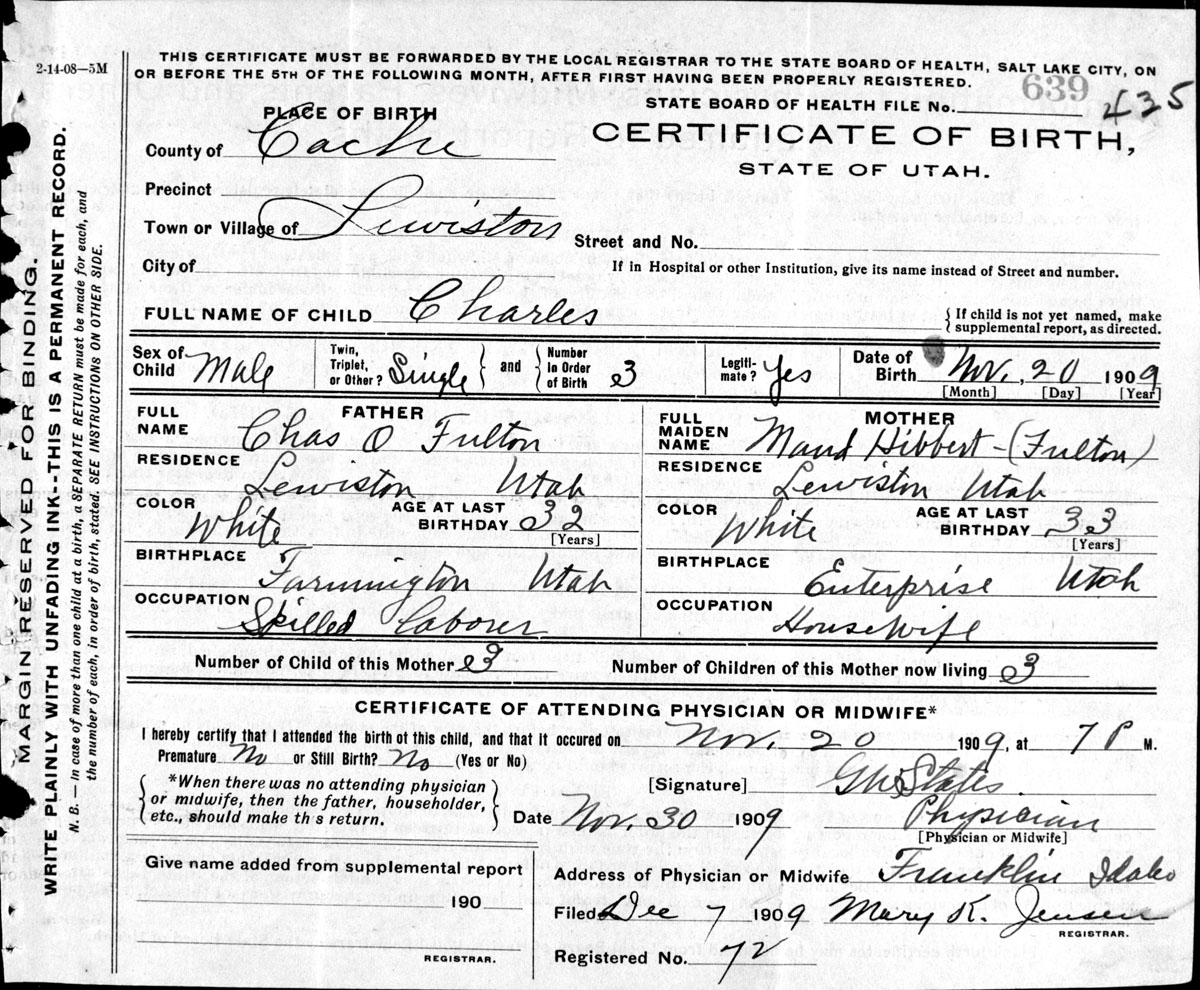 2-14-08—5M
THIS CERTIFICATE MUST BE FORWARDED BY THE LOCAL REGISTRAR TO THE STATE BOARD OF HEALTH, SALT LAKE CITY, ON
OR BEFORE THE 5TH OF THE FOLLOWING MONTH, AFTER FIRST HAVING BEEN PROPERLY REGISTERED.
639
STATE BOARD OF HEALTH FILE No. 435
PLACE OF BIRTH
CERTIFICATE OF BIRTH,
STATE OF UTAH.
County of Cache
Precinct
Town or Village of Lewiston
Street and No.
City of
If in Hospital or other Institution, give its name instead of Street and number.
FULL NAME OF CHILD Charles
{ If child is not yet named, make
{ supplemental report, as directed.
Sex of Child Male
Twin, Triplet, or Other? Single } and { Number In Order of Birth 3
Legiti-mate? Yes
Date of Birth Nov. 20 1909
[Month] [Day] [Year]
FATHER
FULL NAME Chas O Fulton
RESIDENCE Lewiston Utah
COLOR White
AGE AT LAST BIRTHDAY 32
[Years]
BIRTHPLACE Farmington Utah
OCCUPATION Skilled Laborer
MOTHER
FULL MAIDEN NAME Maud Hibbert - (Fulton)
RESIDENCE Lewiston Utah
COLOR White
AGE AT LAST BIRTHDAY 33
[Years]
BIRTHPLACE Enterprise Utah
OCCUPATION Housewife
Number of Child of this Mother 3
Number of Children of this Mother now living 3
CERTIFICATE OF ATTENDING PHYSICIAN OR MIDWIFE*
I hereby certify that I attended the birth of this child, and that it occured on Nov. 20 1909, at 7 P M.
Premature No or Still Birth? No (Yes or No)
{ *When there was no attending physician
or midwife, then the father, householder,
etc., should make th s return. }
[Signature] States
Date Nov. 30 1909
Physician
[Physician or Midwife]
Give name added from supplemental report
190
REGISTRAR.
Address of Physician or Midwife Franklin Idaho
Filed Dec 7 1909 Mary K. Jensen
REGISTRAR.
Registered No. 72
MARGIN RESERVED FOR BINDING.
WRITE PLAINLY WITH UNFADING INK--THIS IS A PERMANENT RECORD.
N. B. — In case of more than one child at a birth, a SEPARATE RETURN must be made for each, and
the number of each, in order of birth, stated. SEE INSTRUCTIONS ON OTHER SIDE.